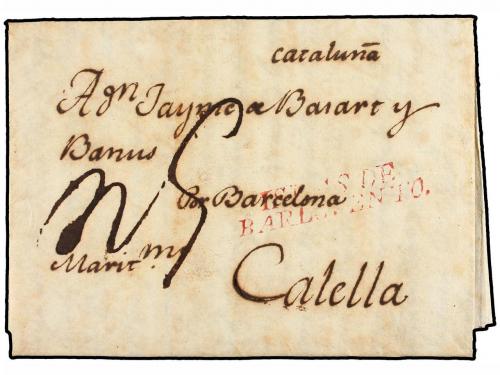 Cataluña
A Dn Jayme Basart y
Banus
Por Barcelona
ISLAS DE
BARLOVENTO.
Maritmo
Calella